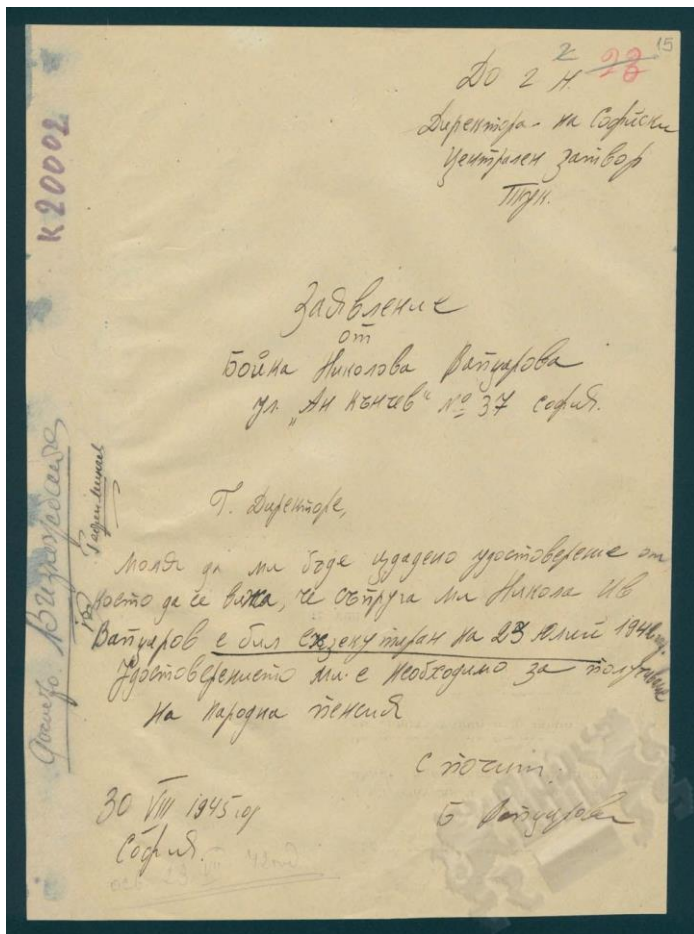 15
28
До г. н.
Директора на Софийски
Централен затвор
Тук.
Заявление
от
Бойка Николова Вапцарова
ул. „Ан Кънчев“ № 37 София.
Г. Директоре,
Моля да ми бъде издадено удостоверение от
което да се вижа, че съпруга ми Никола Ив
Вапцаров е бил екзекутиран на 23 Юлий 1942 г.
Удостоверението ми е необходимо за получаване
на народна пенсия
С почит
30 VIII 1945 год
Б Вапцарова
София.
23 VII 42 год
К20002